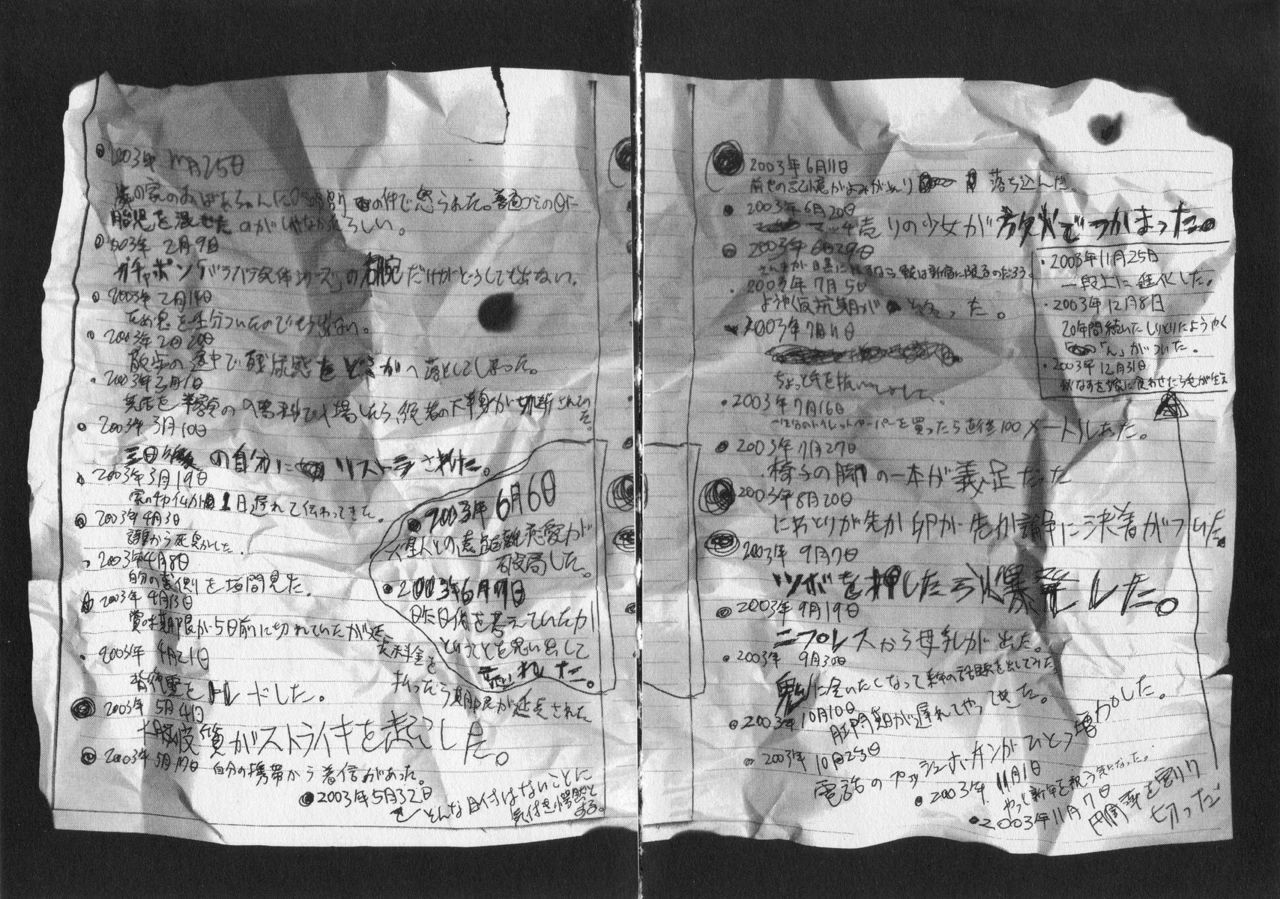 2003年 1月25日
隣の家のおばあちゃんにゴミの分別の件で怒られた。普通ゴミの日に
胎児を混ぜたのがいけなかったらしい。
2003年 2月9日
ガチャポン「バラバラ死体シリーズ」の右腕だけがどうしても出ない。
2003年 2月14日
ため息を
2003年 2月20日
散歩の途中で残尿感をどこかへ落としてしまった。
2003年
2003年 3月10日
三日後の自分にリストラされた。
2003年 3月19日
1日遅れて伝わってきた。
2003年 4月3日
2003年4月8日
自分の裏側を垣間見た。
2003年 4月13日
賞味期限が5日前に切れていたが延
長料金を
払ったら期限が延長された
2003年 4月21日
背後霊をトレードした。
2003年 5月4日
大脳皮質がストライキを起こした。
2003年 5月17日 自分の携帯から着信があった。
2003年5月32日
そんな日付はないことに
気付き愕然と
する。
2003年 6月6日
異星人との遠距離恋愛が
破局した。
2003年6月7日
昨日何を考えていたか
ということを思い出して
忘れた。
2003年 6月11日
前世の記憶がよみがえり 落ち込んだ
2003年 6月20日
マッチ売りの少女が放火でつかまった。
2003年 6月29日
2003年 7月5日
ようやく反抗期が
2003年7月11日
ちょっと
2003年 7月16日
トイレットペーパーを買ったら直径100メートルあった。
2003年 7月27日
椅子の脚の一本が義足だった
2003年 8月20日
にわとりが先か卵が先か論争に決着がついた。
2003年 9月7日
ツボを押したら爆発した。
2003年 9月19日
ニプレスから母乳が出た。
2003年 9月30日
鬼に会いたくなって来年の話題を出してみた
2003年 10月10日
肛門期が遅れてやってきた。
2003年 10月25日
電話のプッシュボタンがひとつ増加した。
2003年 11月1日
やっと新年を祝う気になった。
2003年11月7日
円周率を割り
切った
2003年11月25日
一段上に進化した。
2003年12月8日
20年間続いたしりとりにようやく
「ん」がついた。
2003年 12月31日
秋なすを嫁に食わせたら毛が生え